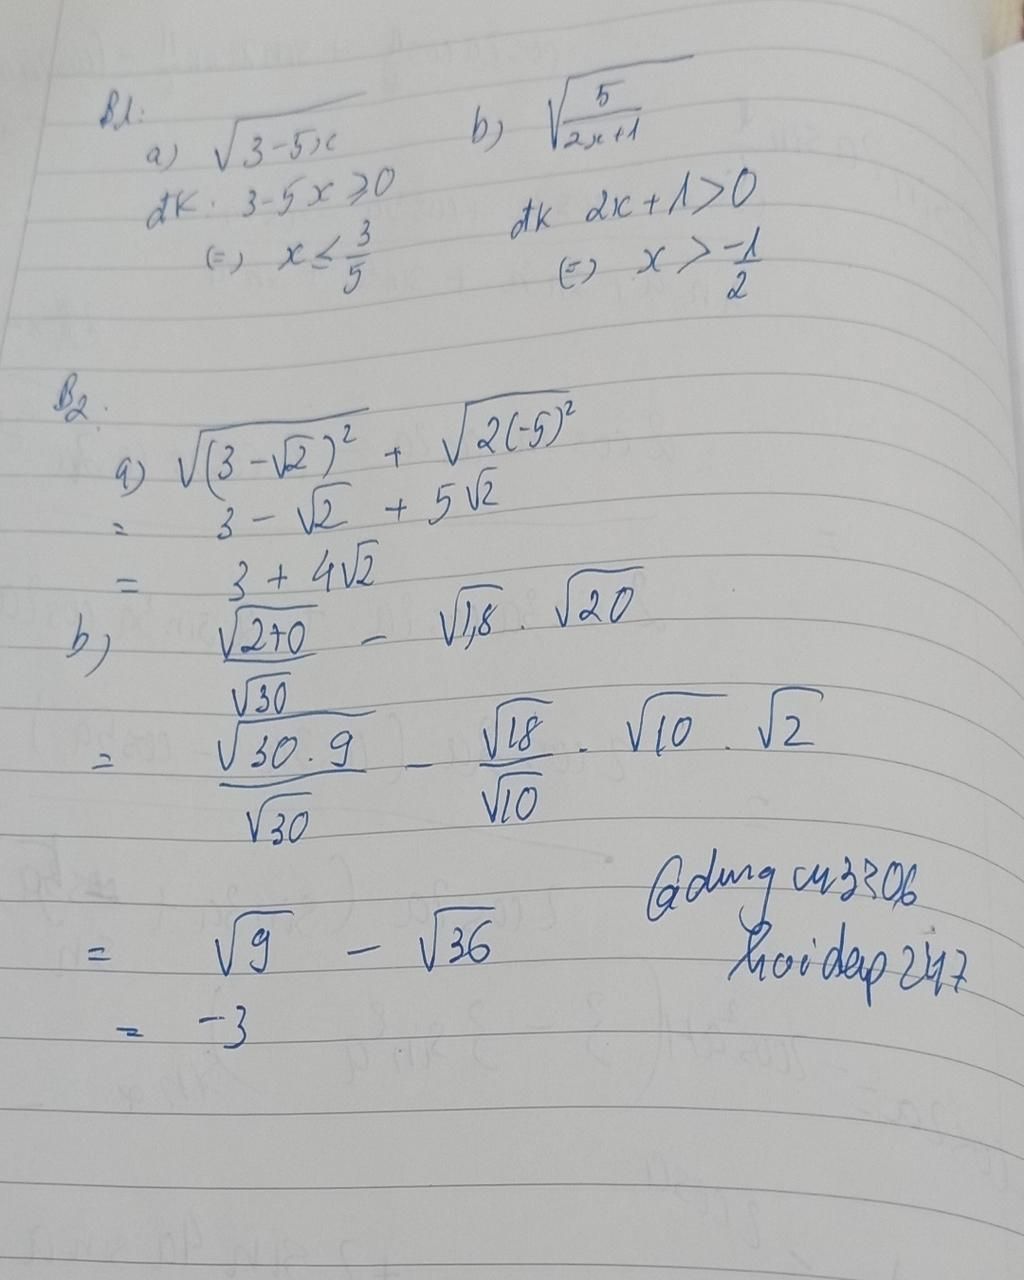 B1:
a) √(3-5x)
đk. 3-5x ≥ 0
(=) x ≤ 3/5
b) √(5/(2x+1))
đk 2x+1>0
(=) x > -1/2
B2.
a) √((3-√2)²) + √(2(-5)²)
= 3 - √2 + 5√2
= 3 + 4√2
b) √270/√30 - √1,8 . √20
= √(30.9)/√30 - √18/√10 . √10 . √2
= √9 - √36
= -3
@dung cu3306
hoidap247